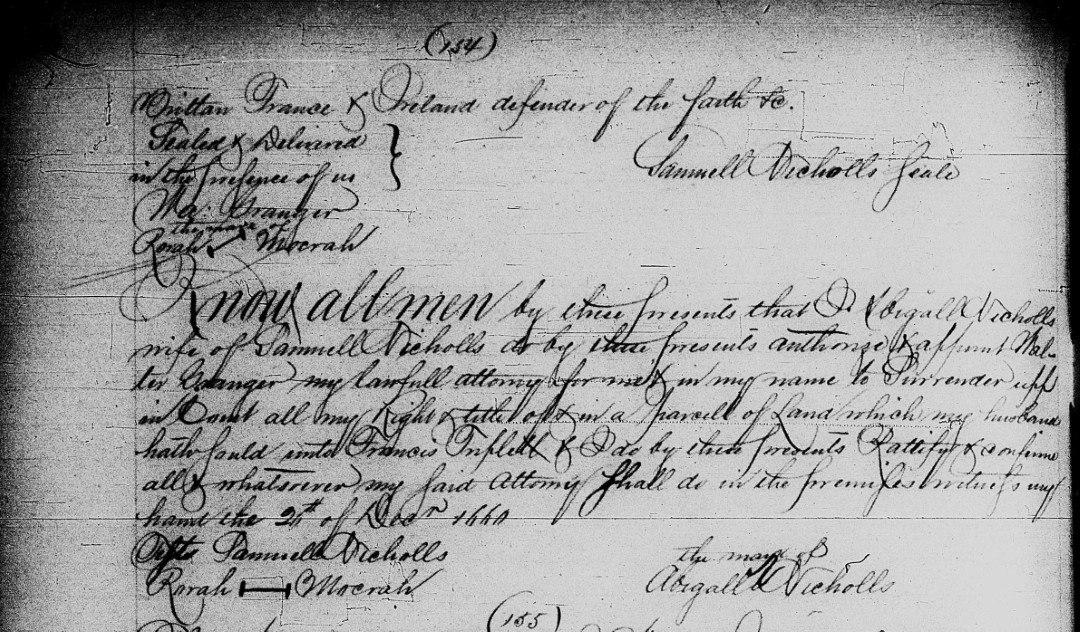 (154)
Brittan France & Ireland defender of the faith &c.
Sealed & Delivered
in the presence of us
Samuell Nicholls Seale
Wa: Granger
the mark of
Rorah Mocrah
Know all men by these presents that I Abigall Nicholls
wife of Samuell Nicholls do by these presents authorize & appoint Wal-
ter Granger my lawfull attorny for me & in my name to Surrender upp
in Court all my Right & title of & in a parcell of Land which my husband
hath sould unto Francis Triplett & I do by these presents Rattify & confirme
all & whatsoever my said Attorny Shall do in the premises witness my
hand the 24th of Decr 1660
Samuell Nicholls
Rorah Mocrah
the mark of
Abigall Nicholls
(155)